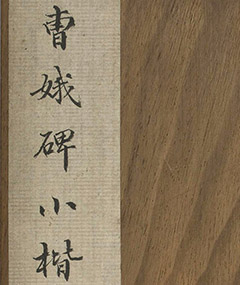 曹娥碑小楷